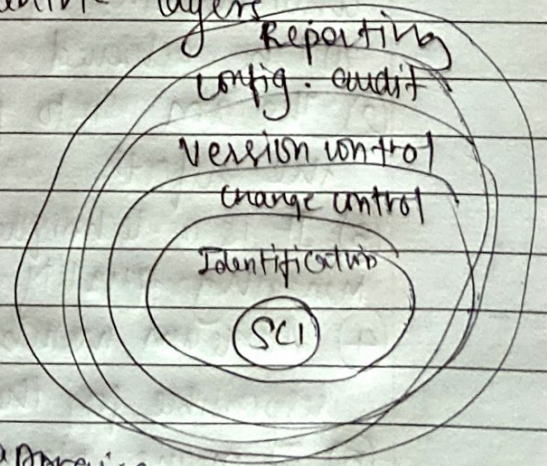 layers
Reporting
config. audit
Version control
change control
Identification
SCI